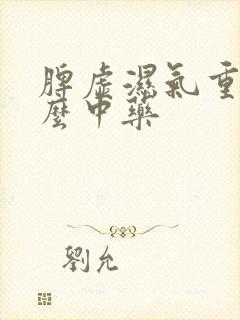 脾虛濕氣重
麼中藥
劉允